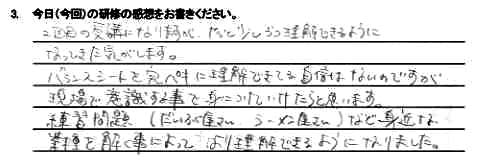 3. 今日(今回)の研修の感想をお書きください。
二回目の受講になりますが、だいぶ少しづつ理解できるように
なってきた気がします。
バランスシートを完ペキに理解できてる自信はないのですが
現場で意識する事で身につけていけたらと思います。
練習問題(だいふく屋さん、ラーメン屋さん)など身近な
業種を解く事によって、より理解できるようになりました。